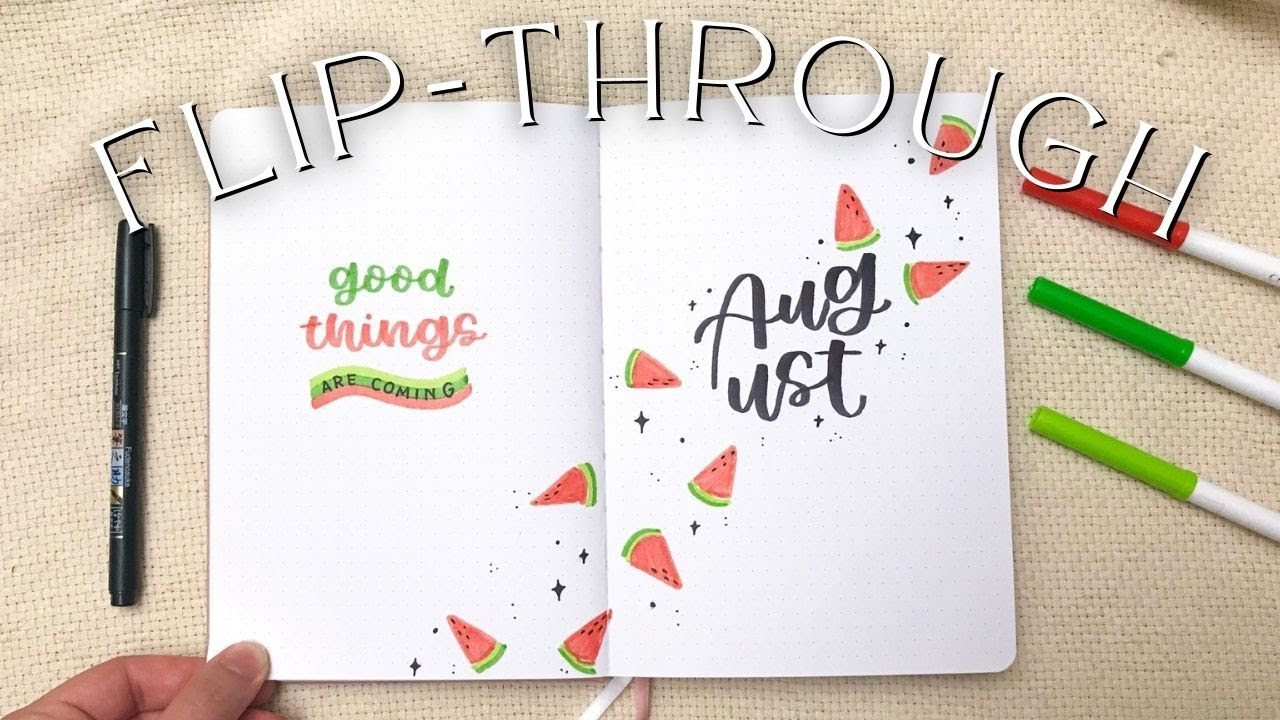 FLIP-THROUGH
good
things
ARE COMING
Aug
ust
Fudenosuke